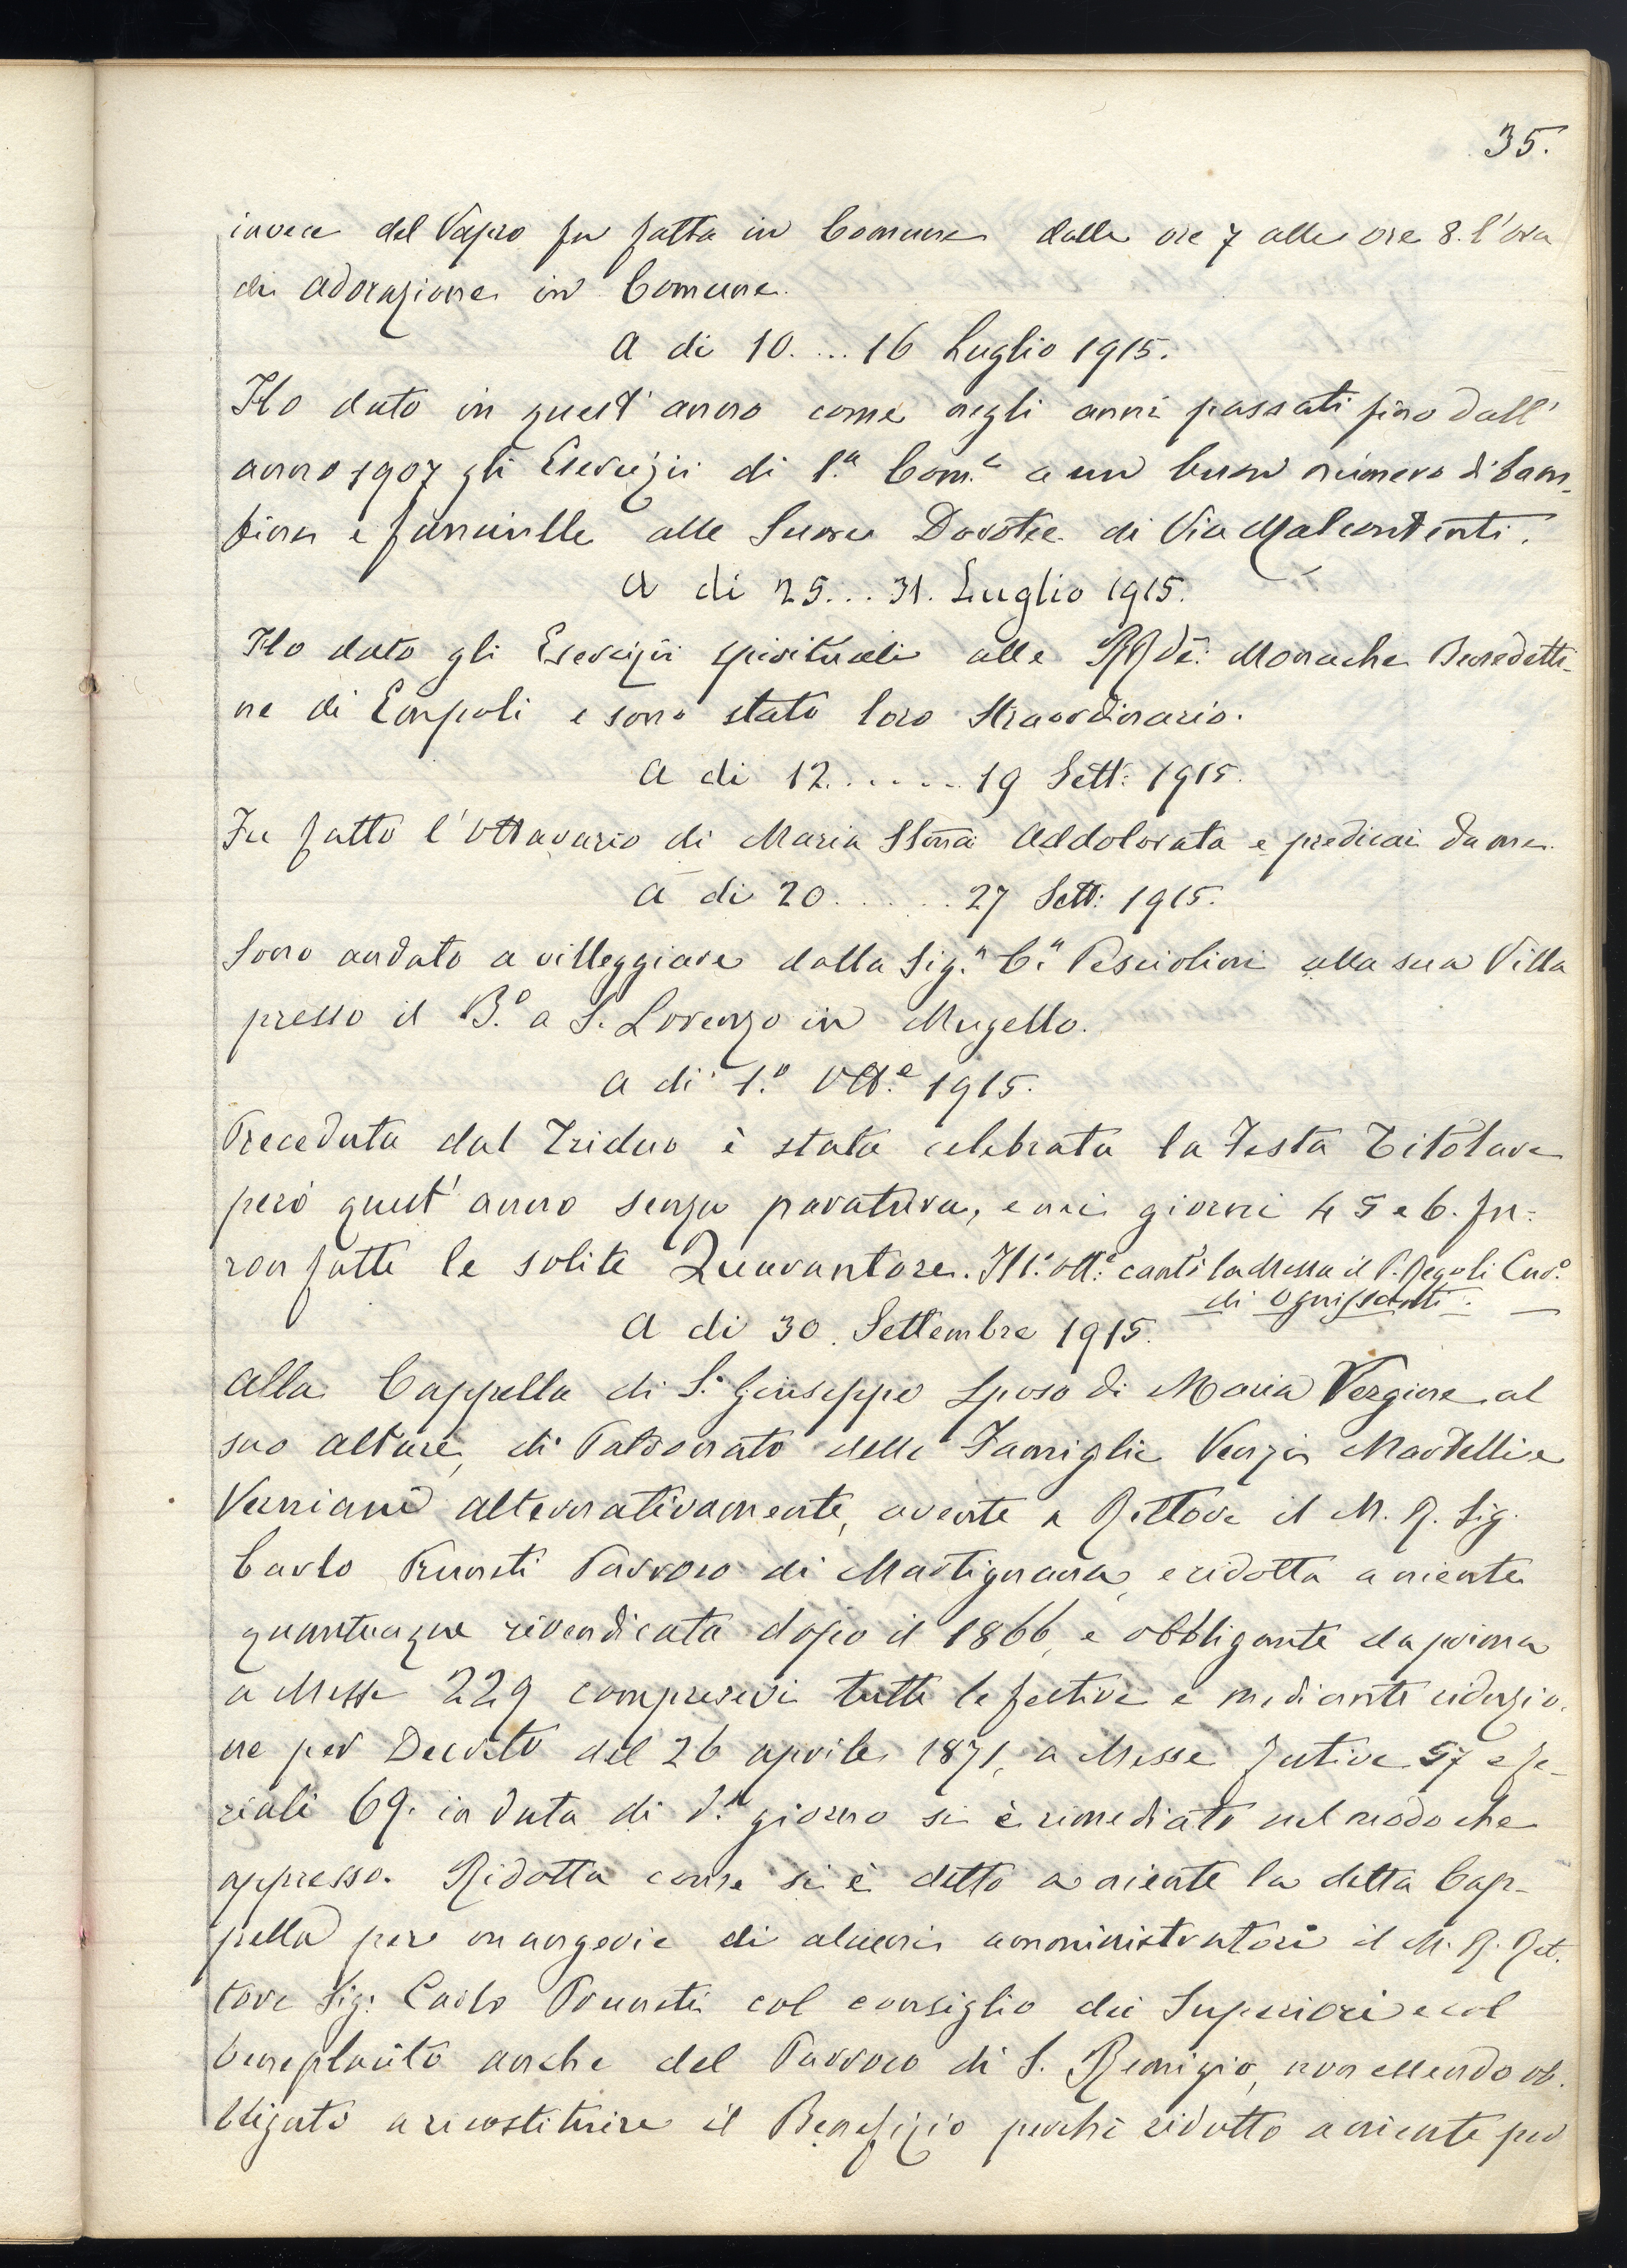 35.
invece del Vespro fu fatta in Comune dalle ore 7 alle ore 8. l'ora
di adorazione in Comune.
A di 10. ... 16 Luglio 1915.
Ho dato in quest'anno come negli anni passati fino dall'
anno 1907 gli Esercizii di 1.a Com.e a un buon numero di bam-
bine e fanciulle alle Suore Dorotee di Via Malcontenti.
A di 25... 31. Luglio 1915.
Ho dato gli Esercizii spirituali alle RRde: Monache Benedetti-
ne di Empoli e sono stato loro Straordinario.
A di 12. ..... 19 Sett: 1915.
Fu fatto l'Ottavario di Maria SSma Addolorata e predicai da me.
A di 20 ...... 27 Sett: 1915.
Sono andato a villeggiare dalla Sig.a C.a Pesciolini alla sua Villa
presso il B.o a S. Lorenzo in Mugello.
A di 1.o Ott.e 1915.
Preceduta dal Triduo è stata celebrata la Festa Titolare
però quest'anno senza paratura, e nei giorni 4 5 e 6. fu-
ron fatte le solite Quarantore. Il 1.o Ott.e cantò la Messa il P. Regoli Cur.o
di Ognissanti.
A di 30. Settembre 1915.
Alla Cappella di S. Giuseppe Sposo di Maria Vergine al
suo altare, di Patronato delle Famiglie Venzi Martelli e
Verniani alternativamente, avente a Rettore il M. R. Sig.
Carlo Pruneti Parroco di Martignana, e ridotta a niente
quantunque rivendicata dopo il 1866, e obbligante da prima
a Messe 229 compresevi tutte le festive e mediante riduzio-
ne per Decreto del 26 aprile 1871, a Messe festive 57 e fe-
riali 69. in data di d.o giorno si è rimediato nel modo che
appresso. Ridotta come si è detto a niente la detta Cap-
pella per mangerie di alcuni amministratori il M. R. Ret-
tore Sig: Carlo Pruneti col consiglio dei Superiori e col
beneplacito anche del Parroco di S. Remigio, non essendo ob-
bligato a ricostituire il Benefizio perchè ridotto a niente per